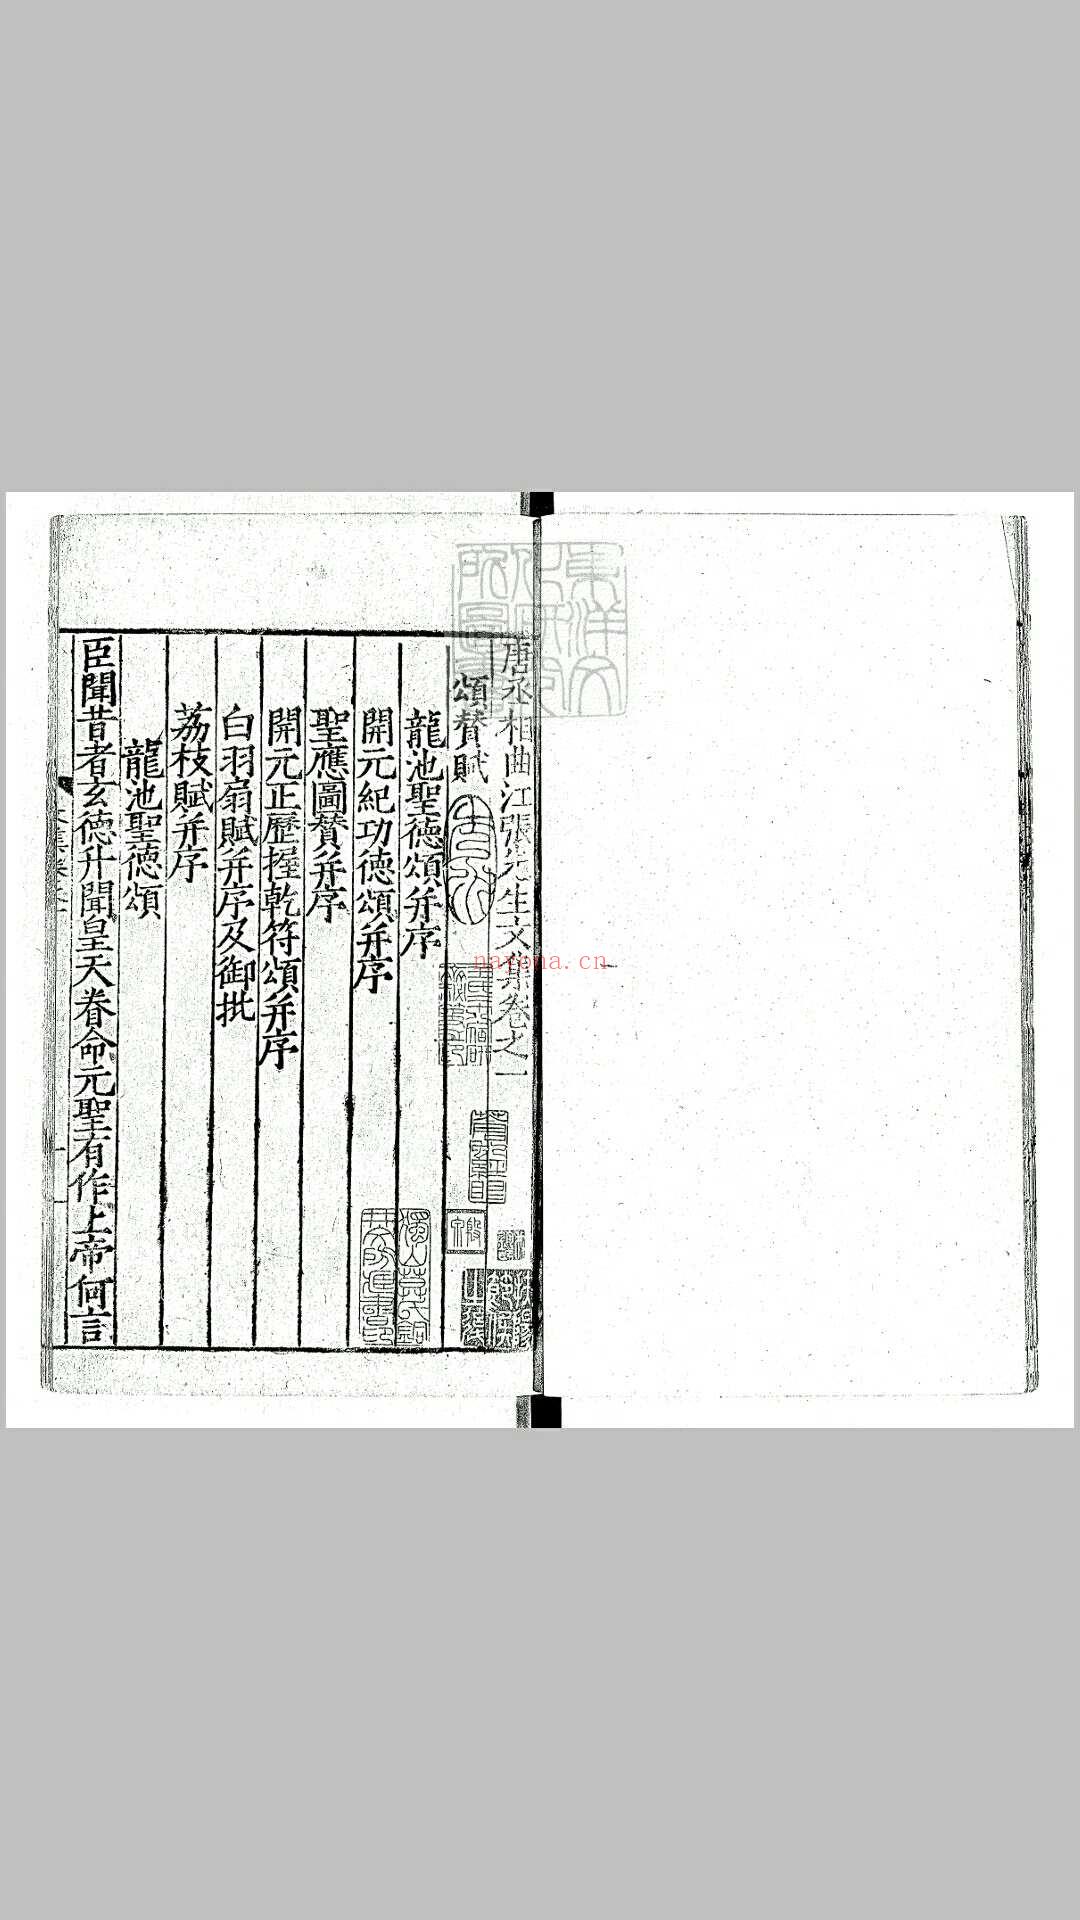 唐丞相曲江張先生文集卷之一
頌賛賦
龍池聖德頌并序
開元紀功德頌并序
聖應圖賛并序
開元正歷握乾符頌并序
白羽扇賦并序及御批
荔枝賦并序
龍池聖德頌
臣聞昔者玄德升聞皇天眷命元聖有作上帝何言
nayona.cn